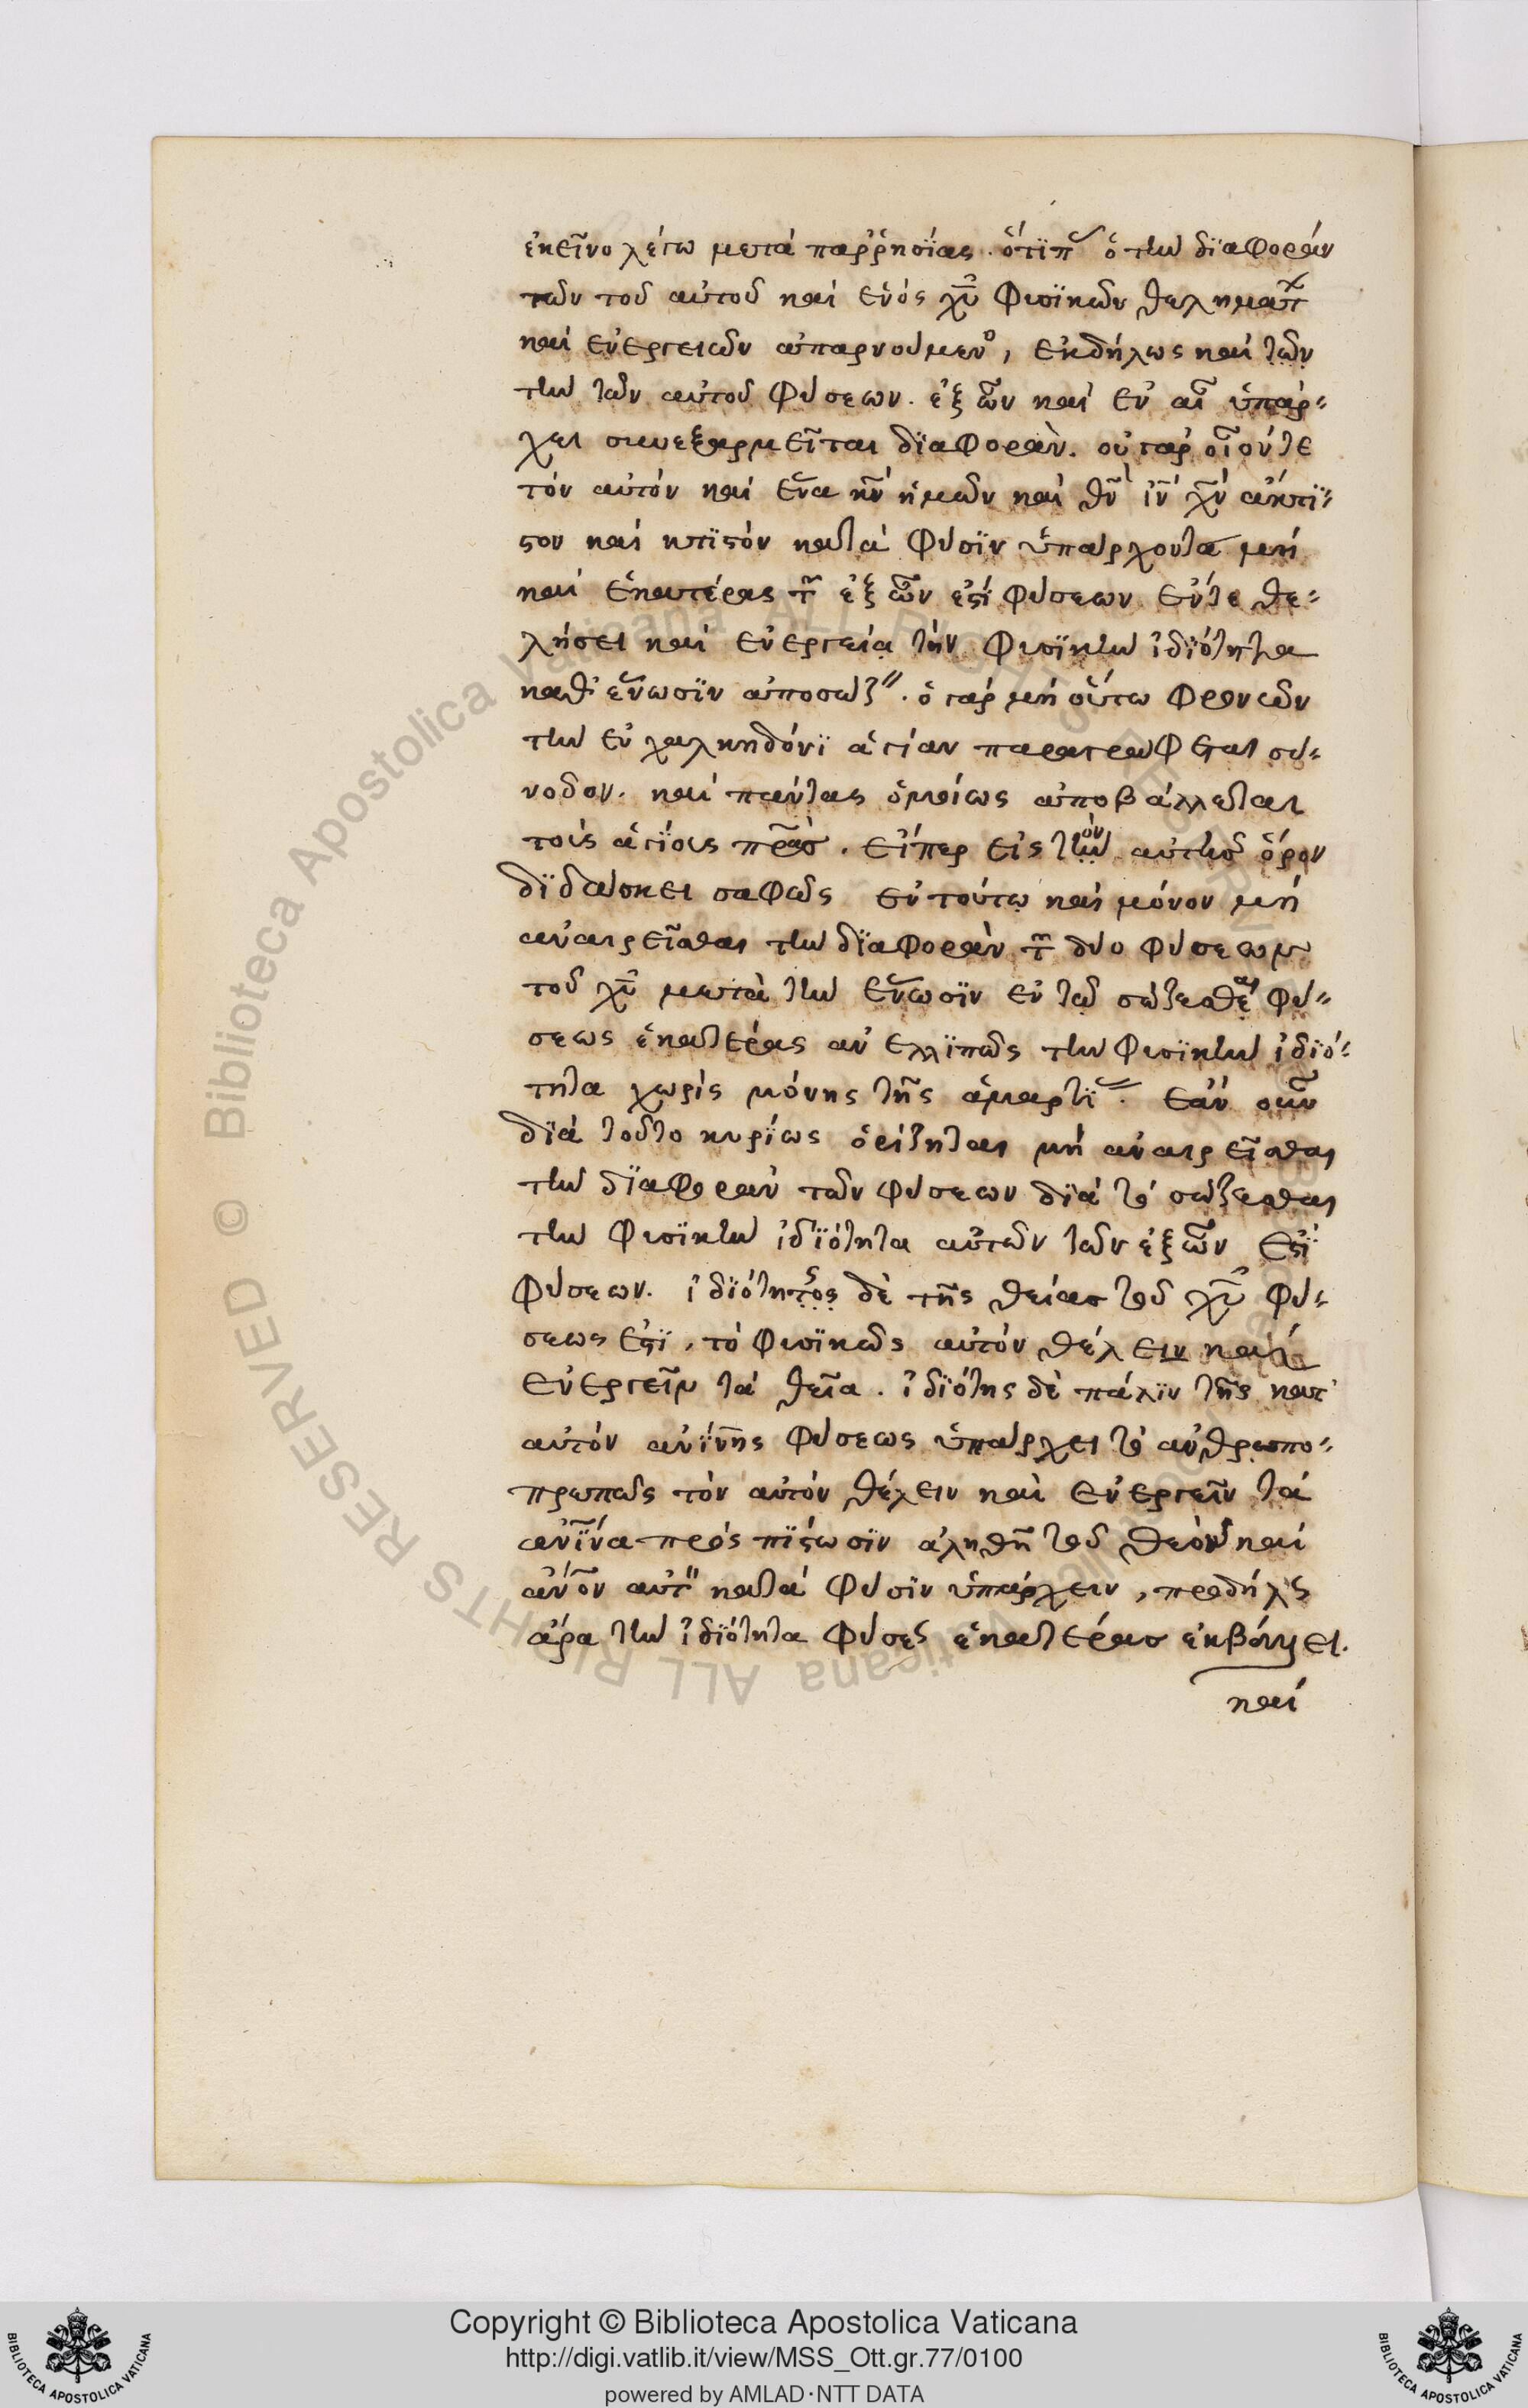 ἐκεῖνο λέγω μετὰ παρρησίας. ὅτιπ ὁ τὴν διαφορὰν
τῶν τοῦ αὐτοῦ καὶ ἑνός χυ φυσϊκῶν θελημάτ
καὶ ἐνεργειῶν ἀπαρνούμεν, ἐκδήλως καὶ τῶν
τὴν τῶν αὐτοῦ φύσεων. ἐξ ὧν καὶ ἐν αἷ ὑπάρ-
χει συνεξαρνεῖται διαφοράν. οὐ γὰρ οἷόν τε
τόν αὐτόν καὶ ἕνα κν ἡμῶν καὶ θν ιν χν ἄκτι-
στον καὶ κτιστόν κατὰ φύσϊν ὑπάρχοντα μὴ
καὶ ἑκατέρας τ ἐξ ὧν ἐστί φύσεων ἔν τε θε-
λήσει καὶ ἐνεργείᾳ τήν φυσϊκὴν ἰδϊότητα
καθ' ἕνωσϊν ἀποσώζ. ὁ γὰρ μὴ οὕτω φρονῶν
τὴν ἐν χαλκηδόνϊ ἁγίαν παραγράφεται σύ-
νοδον. καὶ πάντας ὁμοίως ἀποβάλλεται
τοὺς ἁγϊους πρασ. εἴπερ εἰς τὸν αὐτῆς ὅρον
δϊδάσκει σαφῶς ἐν τούτῳ καὶ μόνον μὴ
ἀναιρεῖσθαι τὴν δϊαφοράν τ δύο φύσεων
τοῦ χυ μετὰ τὴν ἕνωσϊν ἐν τῷ σώζεσθαι φύ-
σεως ἑκατέρας ἀνελλϊπῶς τὴν φυσϊκὴν ἰδϊό-
τητα χωρίς μόνης τῆς ἁμαρτϊ. ἐὰν οὖν
δϊὰ τοῦτο κυρίως ὁρίζηται μὴ ἀναιρεῖσθαι
τὴν δϊαφοράν τῶν φύσεων δϊὰ τὸ σώζεσθαι
τὴν φυσϊκὴν ἰδϊότητα αὐτῶν τῶν ἐξ ὧν ἐστϊ
φύσεων. ἰδϊότητος δὲ τῆς θείας τοῦ χυ φύ-
σεως ἐστϊ, τὸ φυσϊκῶς αὐτόν θέλειν καὶ
ἐνεργεῖν τὰ θεῖα. ἰδϊότης δὲ πάλϊν τῆς κατ'
αὐτόν ανϊνης φύσεως ὑπάρχει τὸ ἀνθρωπο-
πρεπῶς τόν αὐτόν θέλειν καὶ ἐνεργεῖν τὰ
ανϊνα πρός πϊστωσϊν ἀληθῆ τοῦ θεόν καὶ
ανον αὐτ κατὰ φύσϊν ὑπάρχειν, προδήλς
ἄρα τὴν ἰδϊότητα φύσες ἑκατέρας ἐκβάλλει.
καὶ
Copyright © Biblioteca Apostolica Vaticana
http://digi.vatlib.it/view/MSS_Ott.gr.77/0100
powered by AMLAD·NTT DATA